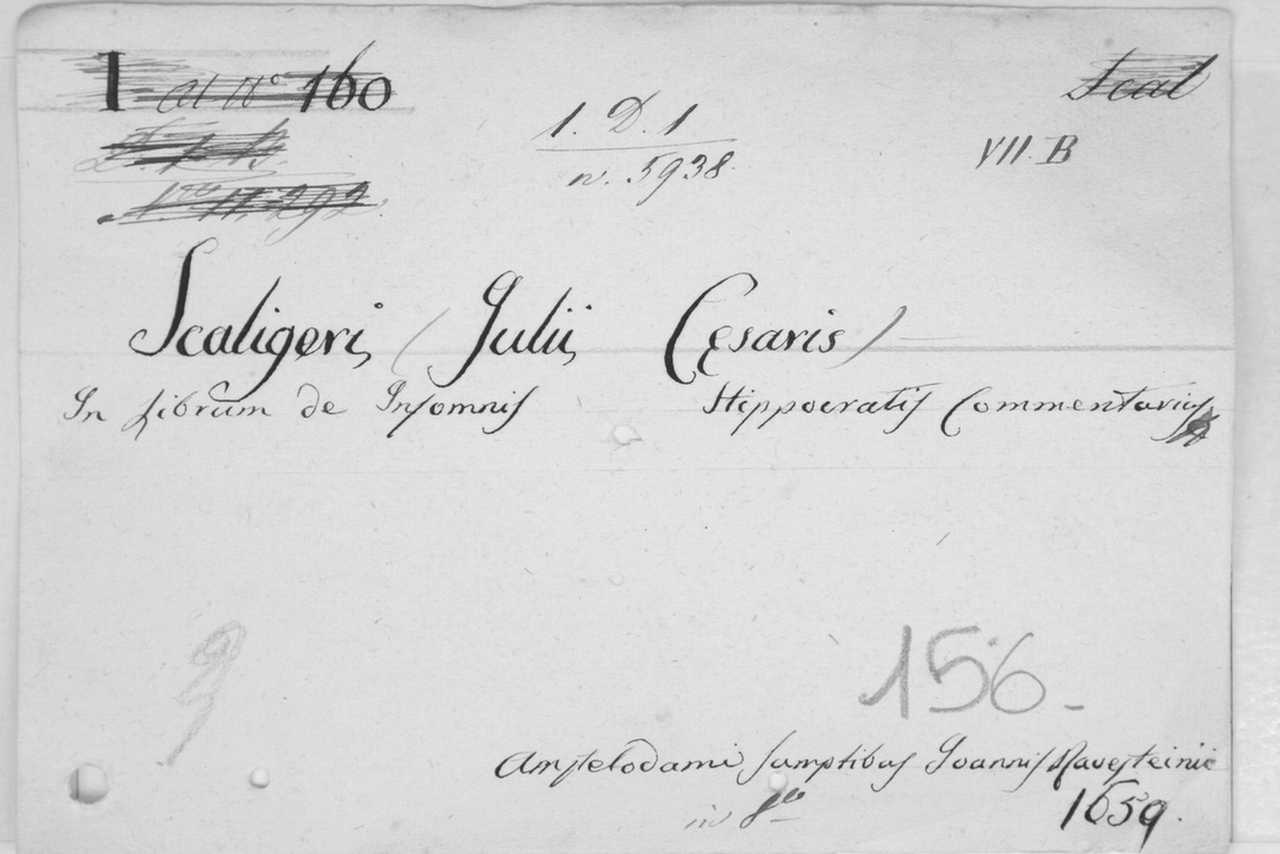 I at N° 160
Scal
1. D. 1
VII. B
n. 5938.
N° 11.292.
Scaligeri (Julii Cesaris)
In Librum de Insomnis Hippocratis Commentarius
156-
Amstelodami sumptibus Joannis Ravesteinii
in 8vo 1659.